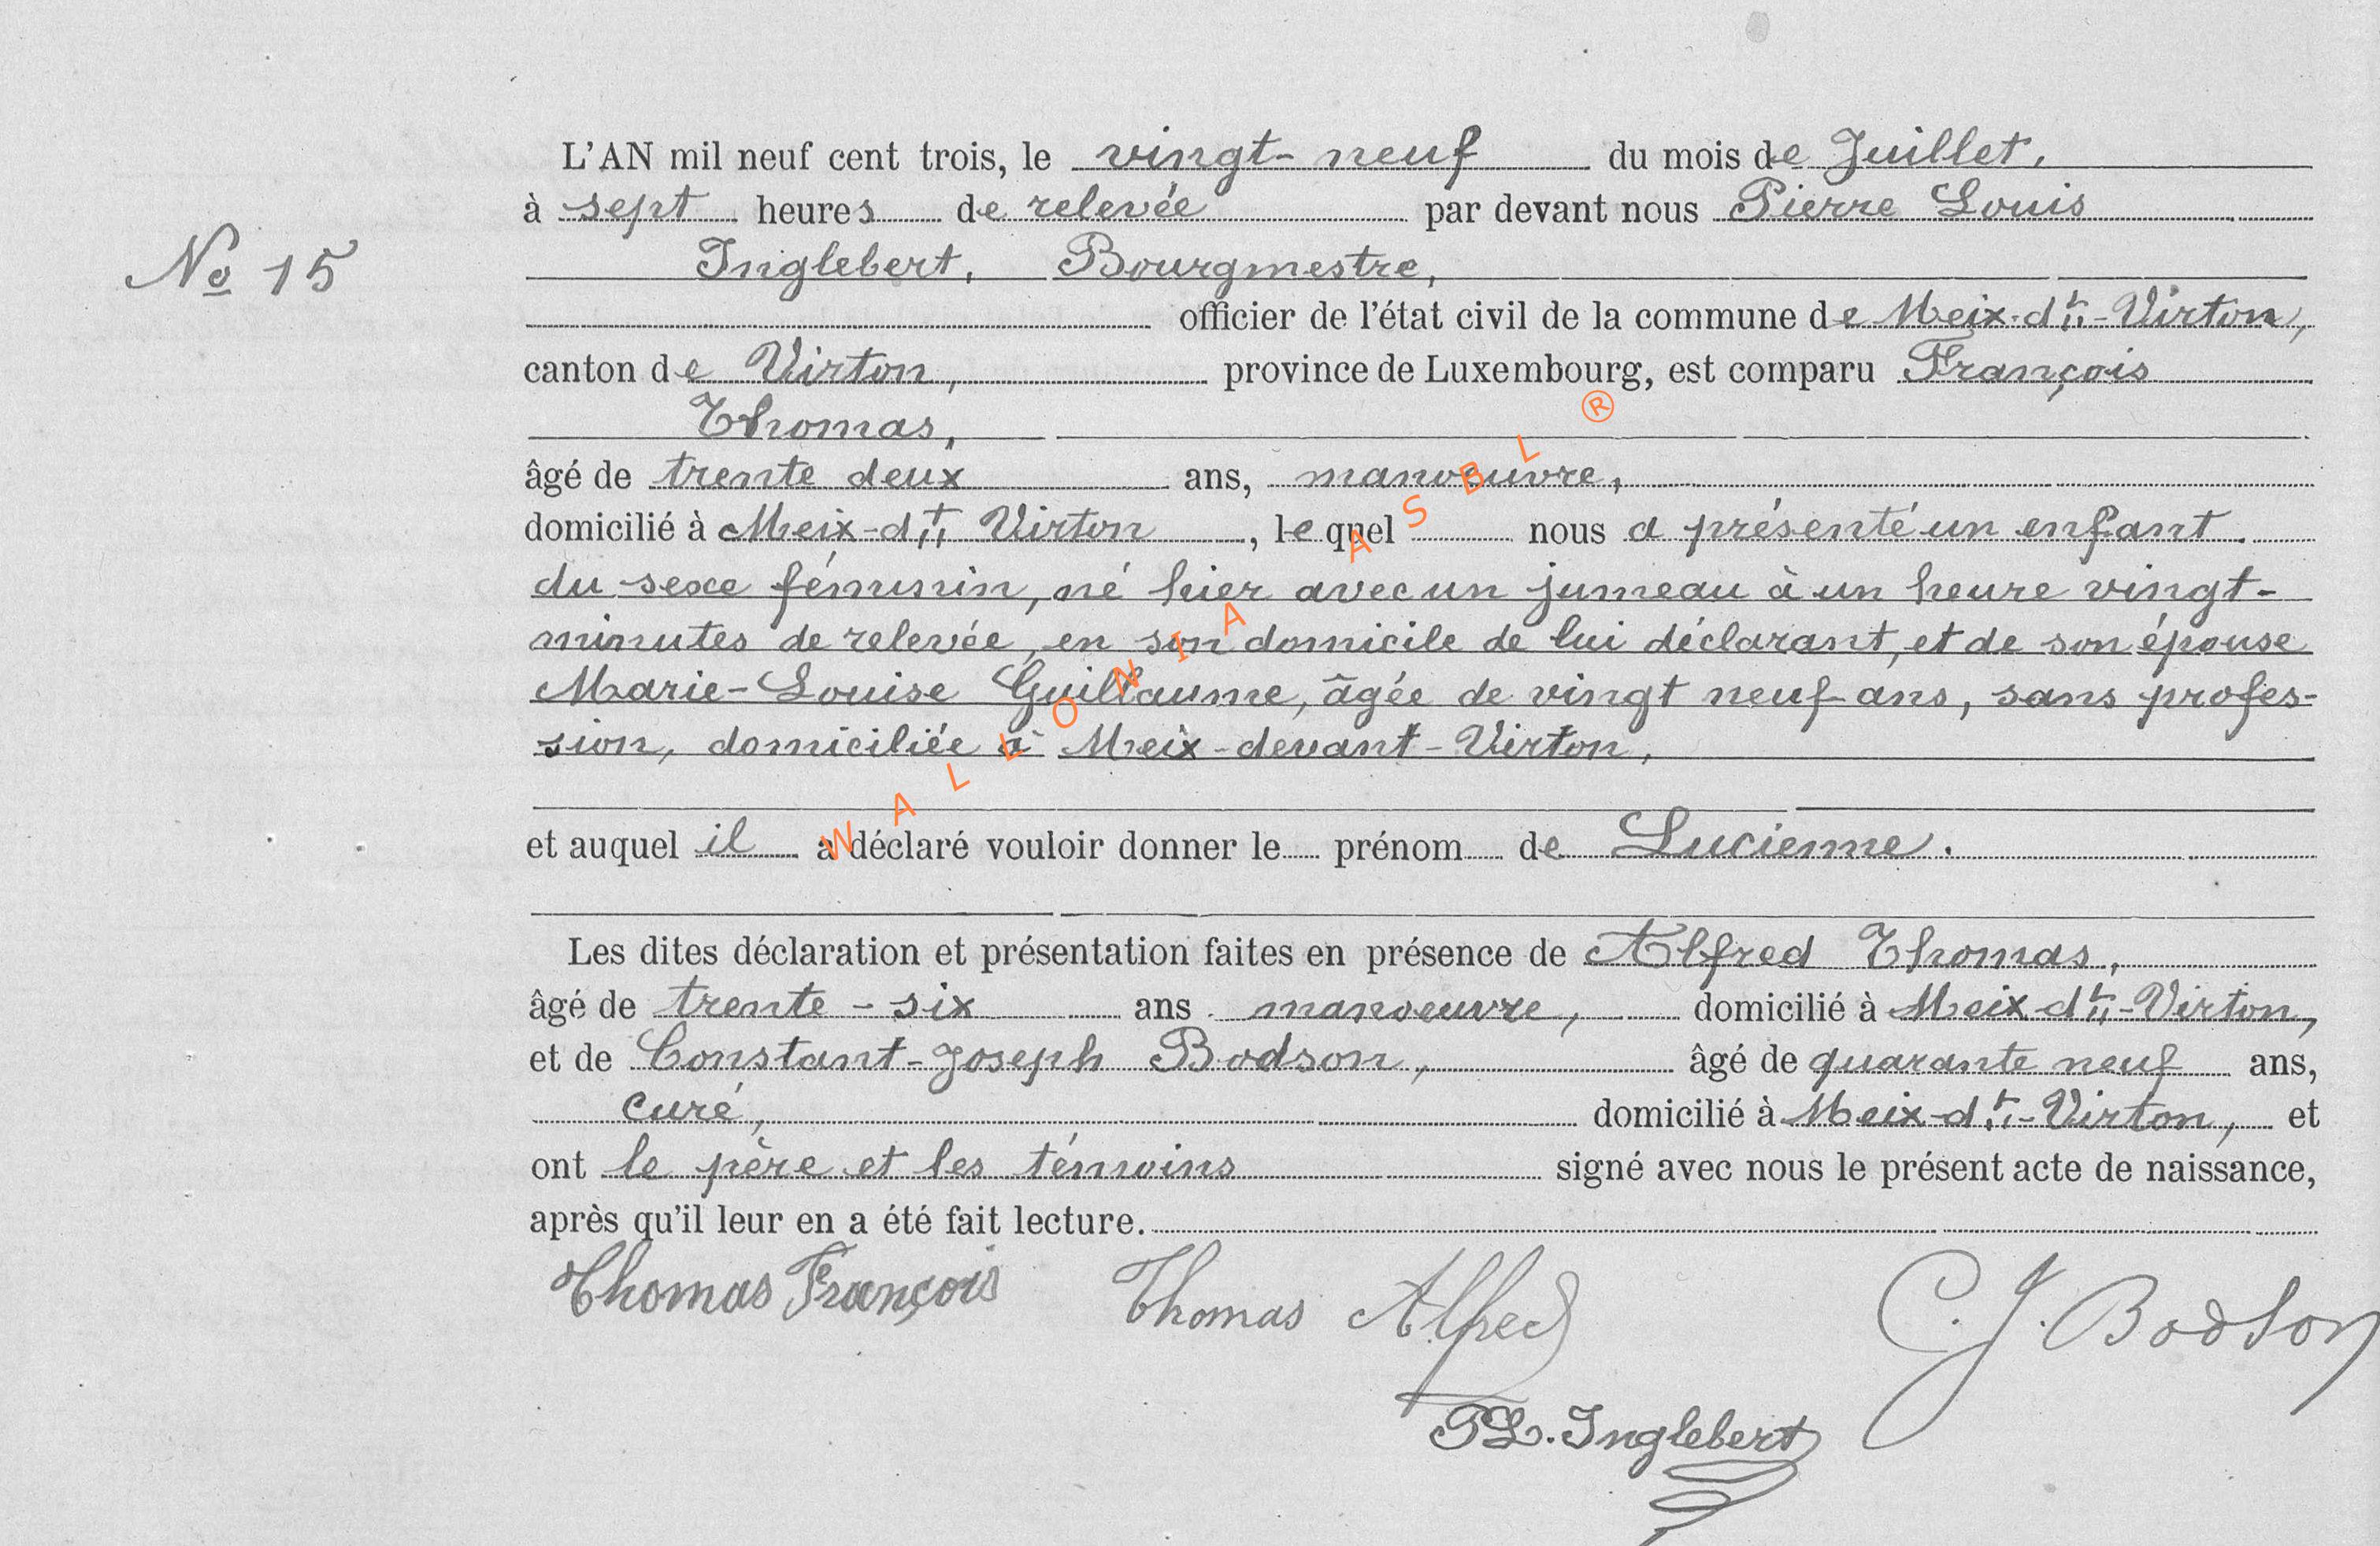 L'AN mil neuf cent trois, le vingt-neuf du mois de Juillet,
à sept heures de relevée par devant nous Pierre Louis
Nº 15
Inglebert, Bourgmestre,
officier de l'état civil de la commune de Meix-dt-Virton,
canton de Virton, province de Luxembourg, est comparu François
Thomas,
âgé de trente deux ans, manoeuvre,
domicilié à Meix-dt Virton, lequel nous a présenté un enfant
du sexe féminin, né hier avec un jumeau à un heure vingt-
minutes de relevée, en son domicile de lui déclarant, et de son épouse
Marie-Louise Guillaume, âgée de vingt neuf ans, sans profes-
sion, domiciliée à Meix-devant-Virton,
et auquel il a déclaré vouloir donner le prénom de Lucienne.
Les dites déclaration et présentation faites en présence de Alfred Thomas,
âgé de trente-six ans manoeuvre, domicilié à Meix dt-Virton,
et de Constant-Joseph Bodson, âgé de quarante neuf ans,
curé, domicilié à Meix-dt-Virton, et
ont le père et les témoins signé avec nous le présent acte de naissance,
après qu'il leur en a été fait lecture.
Thomas François Thomas Alfred C. J. Bodson
PL. Inglebert
WALLONIA ASBL ®